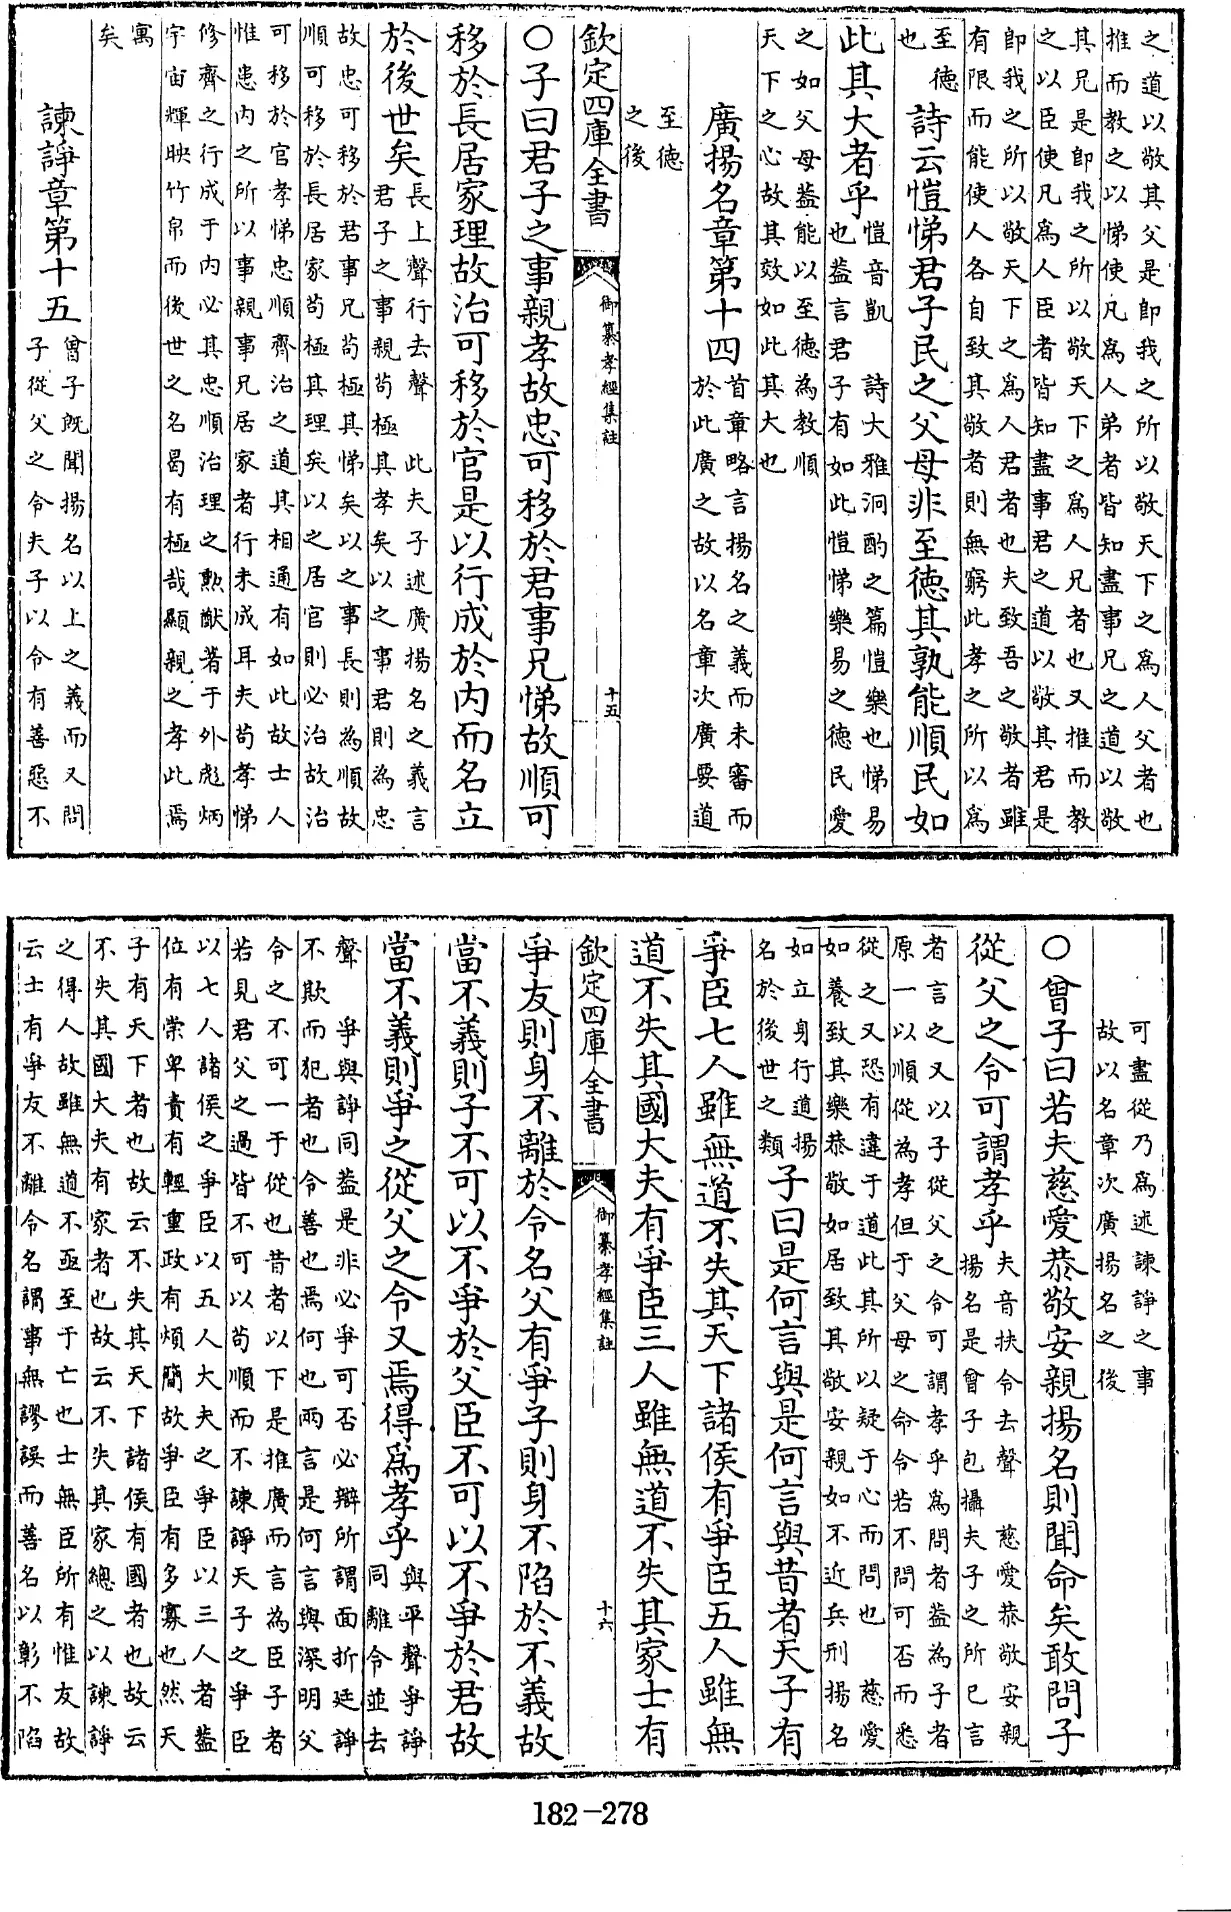 之道以敬其父是即我之所以敬天下之爲人父者也
推而教之以悌使凡爲人弟者皆知盡事兄之道以敬
其兄是即我之所以敬天下之爲人兄者也又推而教
之以臣使凡爲人臣者皆知盡事君之道以敬其君是
即我之所以敬天下之爲人君者也夫致吾之敬者雖
有限而能使人各自致其敬者則無窮此孝之所以爲
至德
也
詩云愷悌君子民之父母非至德其孰能順民如
此其大者乎
愷音凱 詩大雅泂酌之篇愷樂也悌易
也蓋言君子有如此愷悌樂易之德民愛
之如父母蓋能以至德為教順
天下之心故其效如此其大也
廣揚名章第十四
首章略言揚名之義而未審而
於此廣之故以名章次廣要道
至德
之後
欽定四庫全書
御纂孝經集註
十五
○子曰君子之事親孝故忠可移於君事兄悌故順可
移於長居家理故治可移於官是以行成於内而名立
於後世矣
長上聲行去聲 此夫子述廣揚名之義言
君子之事親茍極其孝矣以之事君則為忠
故忠可移於君事兄茍極其悌矣以之事長則為順故
順可移於長居家茍極其理矣以之居官則必治故治
可移於官孝悌忠順齊治之道其相通有如此故士人
惟患内之所以事親事兄居家者行未成耳夫茍孝悌
修齊之行成于内必其忠順治理之勲猷著于外彪炳
宇宙輝映竹帛而後世之名曷有極哉顯親之孝此焉
寓
矣
諫諍章第十五
曾子既聞揚名以上之義而又問
子從父之令夫子以令有善惡不
可盡從乃爲述諫諍之事
故以名章次廣揚名之後
○曾子曰若夫慈愛恭敬安親揚名則聞命矣敢問子
從父之令可謂孝乎
夫音扶令去聲 慈愛恭敬安親
揚名是曾子包攝夫子之所已言
者言之又以子從父之令可謂孝乎爲問者蓋為子者
原一以順從為孝但于父母之命令若不問可否而悉
從之又恐有違于道此其所以疑于心而問也 慈愛
如養致其樂恭敬如居致其敬安親如不近兵刑揚名
如立身行道揚
名於後世之類
子曰是何言與是何言與昔者天子有
爭臣七人雖無道不失其天下諸侯有爭臣五人雖無
道不失其國大夫有爭臣三人雖無道不失其家士有
欽定四庫全書
御纂孝經集註
十六
爭友則身不離於令名父有爭子則身不陷於不義故
當不義則子不可以不爭於父臣不可以不爭於君故
當不義則爭之從父之令又焉得爲孝乎
與平聲爭諍
同離令並去
聲 爭與諍同蓋是非必爭可否必辯所謂面折廷諍
不欺而犯者也令善也焉何也兩言是何言與深明父
令之不可一于從也昔者以下是推廣而言為臣子者
若見君父之過皆不可以茍順而不諫諍天子之爭臣
以七人諸侯之爭臣以五人大夫之爭臣以三人者蓋
位有崇卑責有輕重政有煩簡故爭臣有多寡也然天
子有天下者也故云不失其天下諸侯有國者也故云
不失其國大夫有家者也故云不失其家總之以諫諍
之得人故雖無道不亟至于亡也士無臣所有惟友故
云士有爭友不離令名謂事無謬誤而善名以彰不陷
182-278